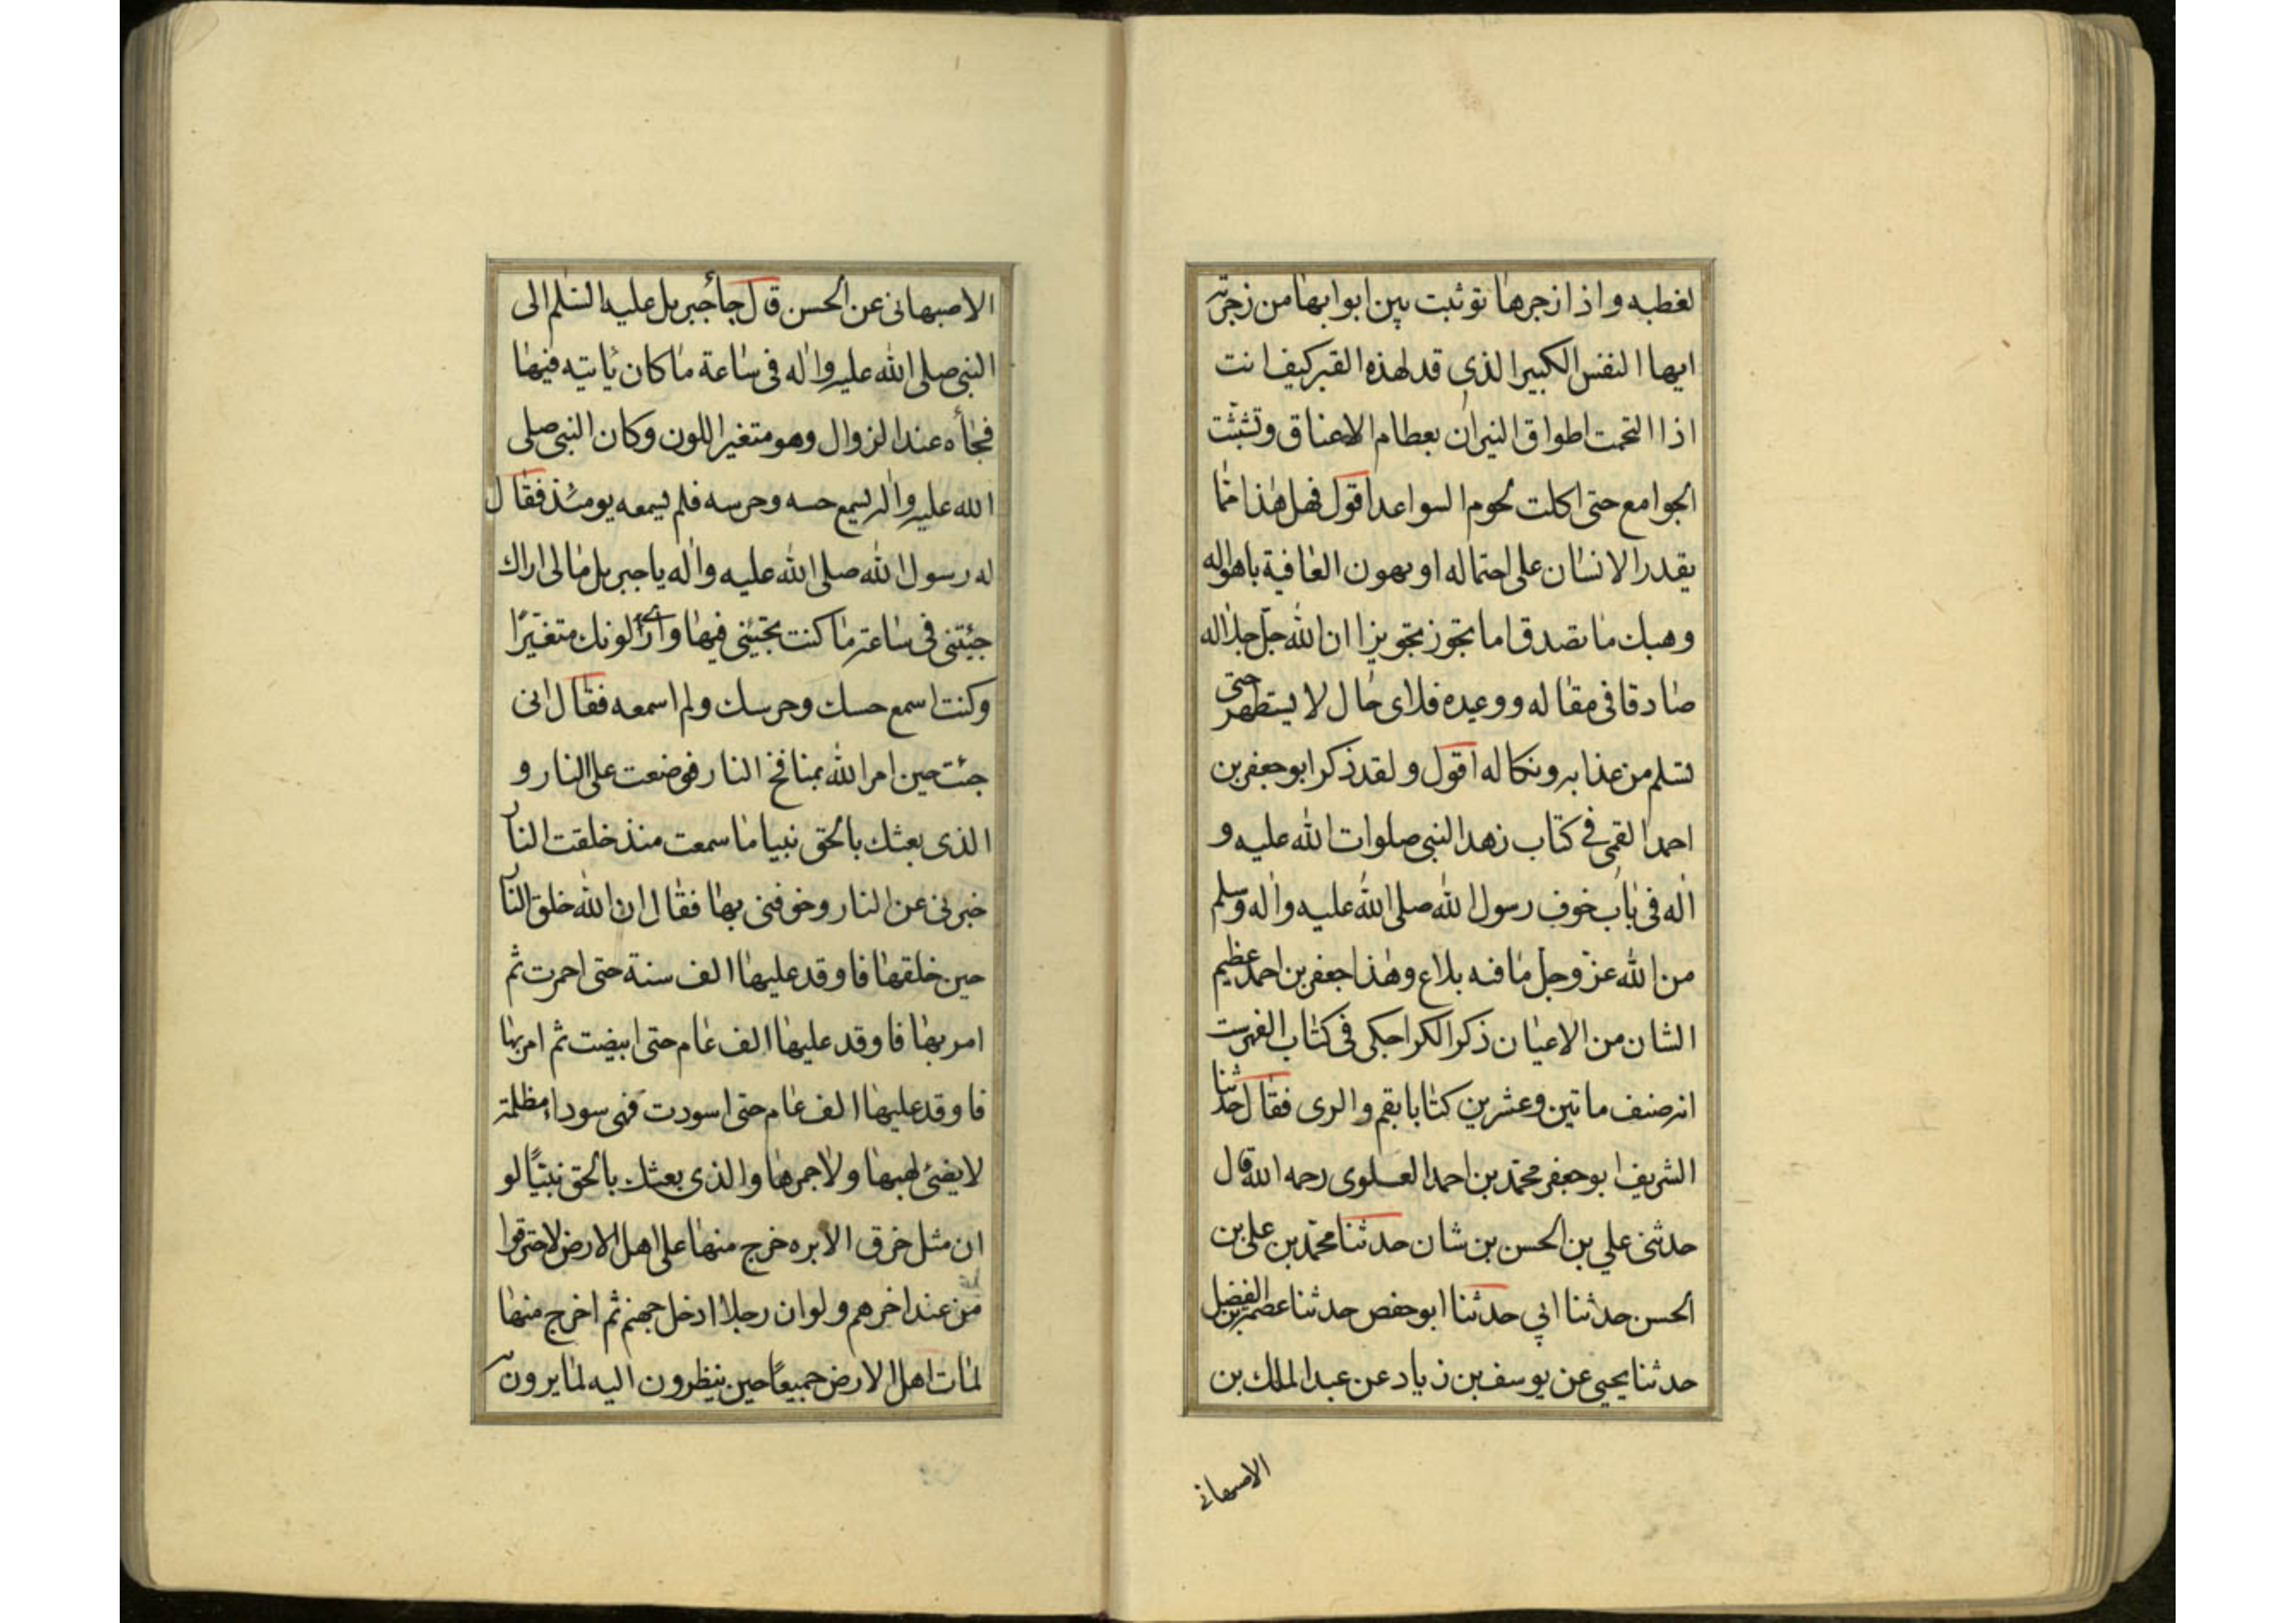 لغطبه واذا زجرها توثبت بين ابوابها من زجرته
ايها النفس الكبير الذي قد لهذه القبر كيف انت
اذا التحمت اطواق النيران بعظام الاعناق وتشبثت
الجوامع حتى اكلت لحوم السواعد اقول فهل هذا مما
يقدر الانسان على احتماله او يهون العافية باهواله
وهبك ما تصدق اما تجوز تجويزا ان الله جل جلاله
صادقا في مقاله ووعيده فلاى حال لا يستظهر حتى
تسلم من عذابه ونكاله اقول ولقد ذكر ابو جعفر بن
احمد القمى في كتاب زهد النبى صلوات الله عليه و
اله فى باب خوف رسول الله صلى الله عليه واله وسلم
من الله عز وجل ما فيه بلاغ وهذا جعفر بن احمد عظيم
الشان من الاعيان ذكر الكراجكى فى كتاب الفهرست
انه صنف ماتين وعشرين كتابا بقم والرى فقال حدثنا
الشريف ابو جعفر محمد بن احمد العلوى رحمه الله قال
حدثنى علي بن الحسن بن شان حدثنا محمد بن على بن
الحسن حدثنا ابي حدثنا ابو حفص حدثنا عصمة بن الفضل
حدثنا يحيى عن يوسف بن زياد عن عبد الملك بن
الاصبهانى
الاصبهانى عن الحسن قال جأ جبريل عليه السلم الى
النبى صلى الله عليه واله فى ساعة ما كان ياتيه فيها
فجأه عند الزوال وهو متغير اللون وكان النبى صلى
الله عليه واله يسمع حسه وجرسه فلم يسمعه يومئذ فقال
له رسول الله صلى الله عليه واله يا جبريل ما لى اراك
جيئتنى فى ساعة ما كنت تجيئنى فيها وارى لونك متغيرًا
وكنت اسمع حسك وجرسك ولم اسمعه فقال انى
جئت حين امر الله بمنافخ النار فوضعت على النار و
الذى بعثك بالحق نبيا ما سمعت منذ خلقت النار
خبرنى عن النار وخوفنى بها فقال ان الله خلق النار
حين خلقها فاوقد عليها الف سنة حتى احمرت ثم
امر بها فاوقد عليها الف عام حتى ابيضت ثم امر بها
فاوقد عليها الف عام حتى اسودت فهى سوداء مظلمة
لا يضئ لهبها ولا جمرها والذى بعثك بالحق نبيًا لو
ان مثل خرق الابره خرج منها على اهل الارض لاحترقوا
من عند اخرهم ولو ان رجلا ادخل جهنم ثم اخرج منها
لمات اهل الارض جميعًا حين ينظرون اليه لما يرون